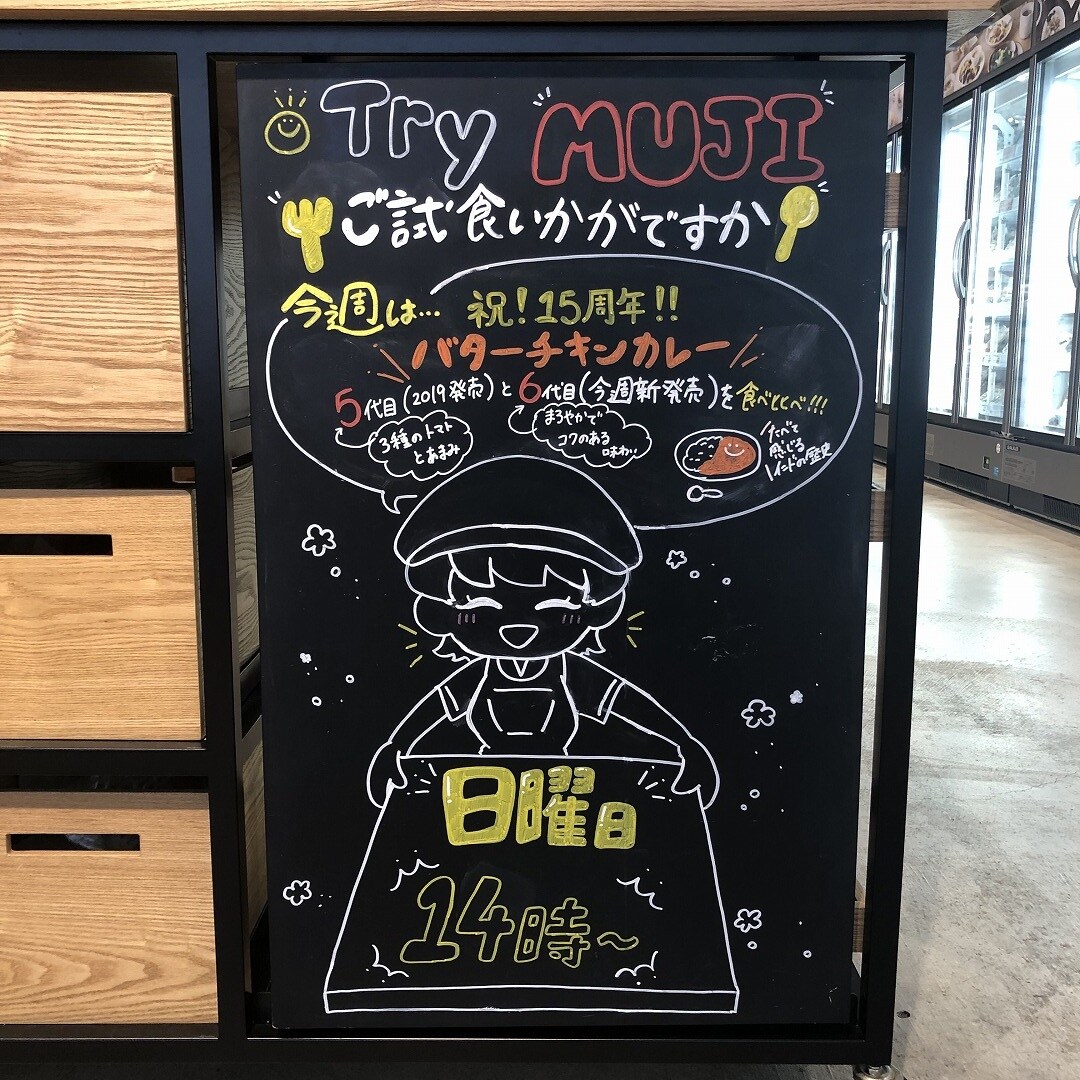 Try MUJI
ご試食いかがですか
今週は…
祝！15周年！！
バターチキンカレー
5代目(2019発売)と6代目(今週新発売)を食べとべ!!!
3種のトマト
とあまみ
まろやかで
コクのある
味わい
たべて
感じる
インドの歴史
日曜日
14時～